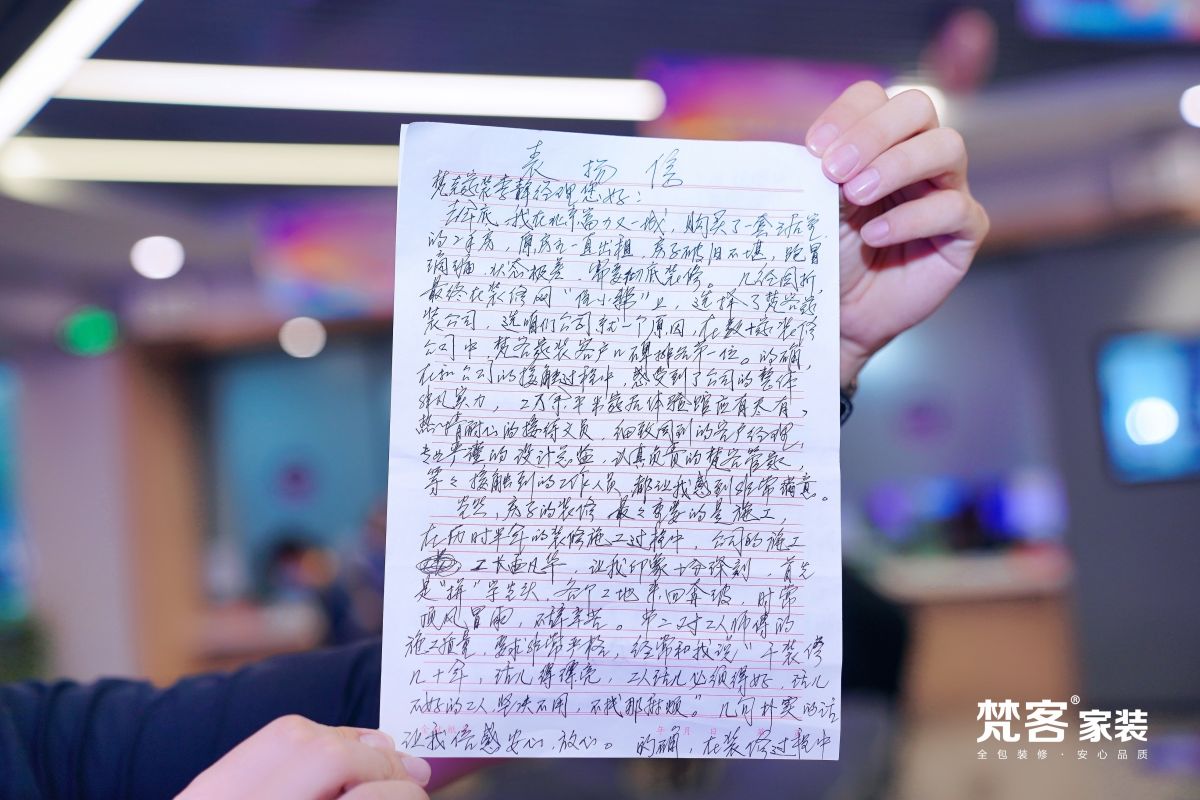 表扬信
梵客家装李静经理您好：
去年底，我在北京富力又一城，购买了一套三居室
的二手房，原房主一直出租，房子破旧不堪，跑冒
滴漏，状态极差，需要彻底装修。几经周折，
最终在装修网“住小帮”上，选择了梵客家
装公司，选咱们公司就一个原因，在数十家装修
公司中，梵客家装客户口碑排名第一位。的确，
在和公司的接触过程中，感受到了公司的整体
实力，2万余平米家居体验馆应有尽有，
热情耐心的接待文员，细致周到的客户经理，
专业严谨的设计总监，认真负责的梵客管家，
等等接触到的工作人员，都让我感到非常满意。
当然，房子的装修最主要的是施工，
在历时半年的装修施工过程中，公司的施工
工长，让我印象十分深刻，首先
是“拼”字当头，各个工地来回奔波，时常
顶风冒雨，不辞辛苦。第二对工人师傅的
施工质量，要求非常严格，经常和我说“干装修
几十年，活儿得漂亮，工人活儿必须得好，活儿
不好的工人坚决不用，不找那麻烦。”几句朴实的话
让我倍感安心，放心。的确，在装修过程中
年 月 日
梵客®家装
全包装修·安心品质